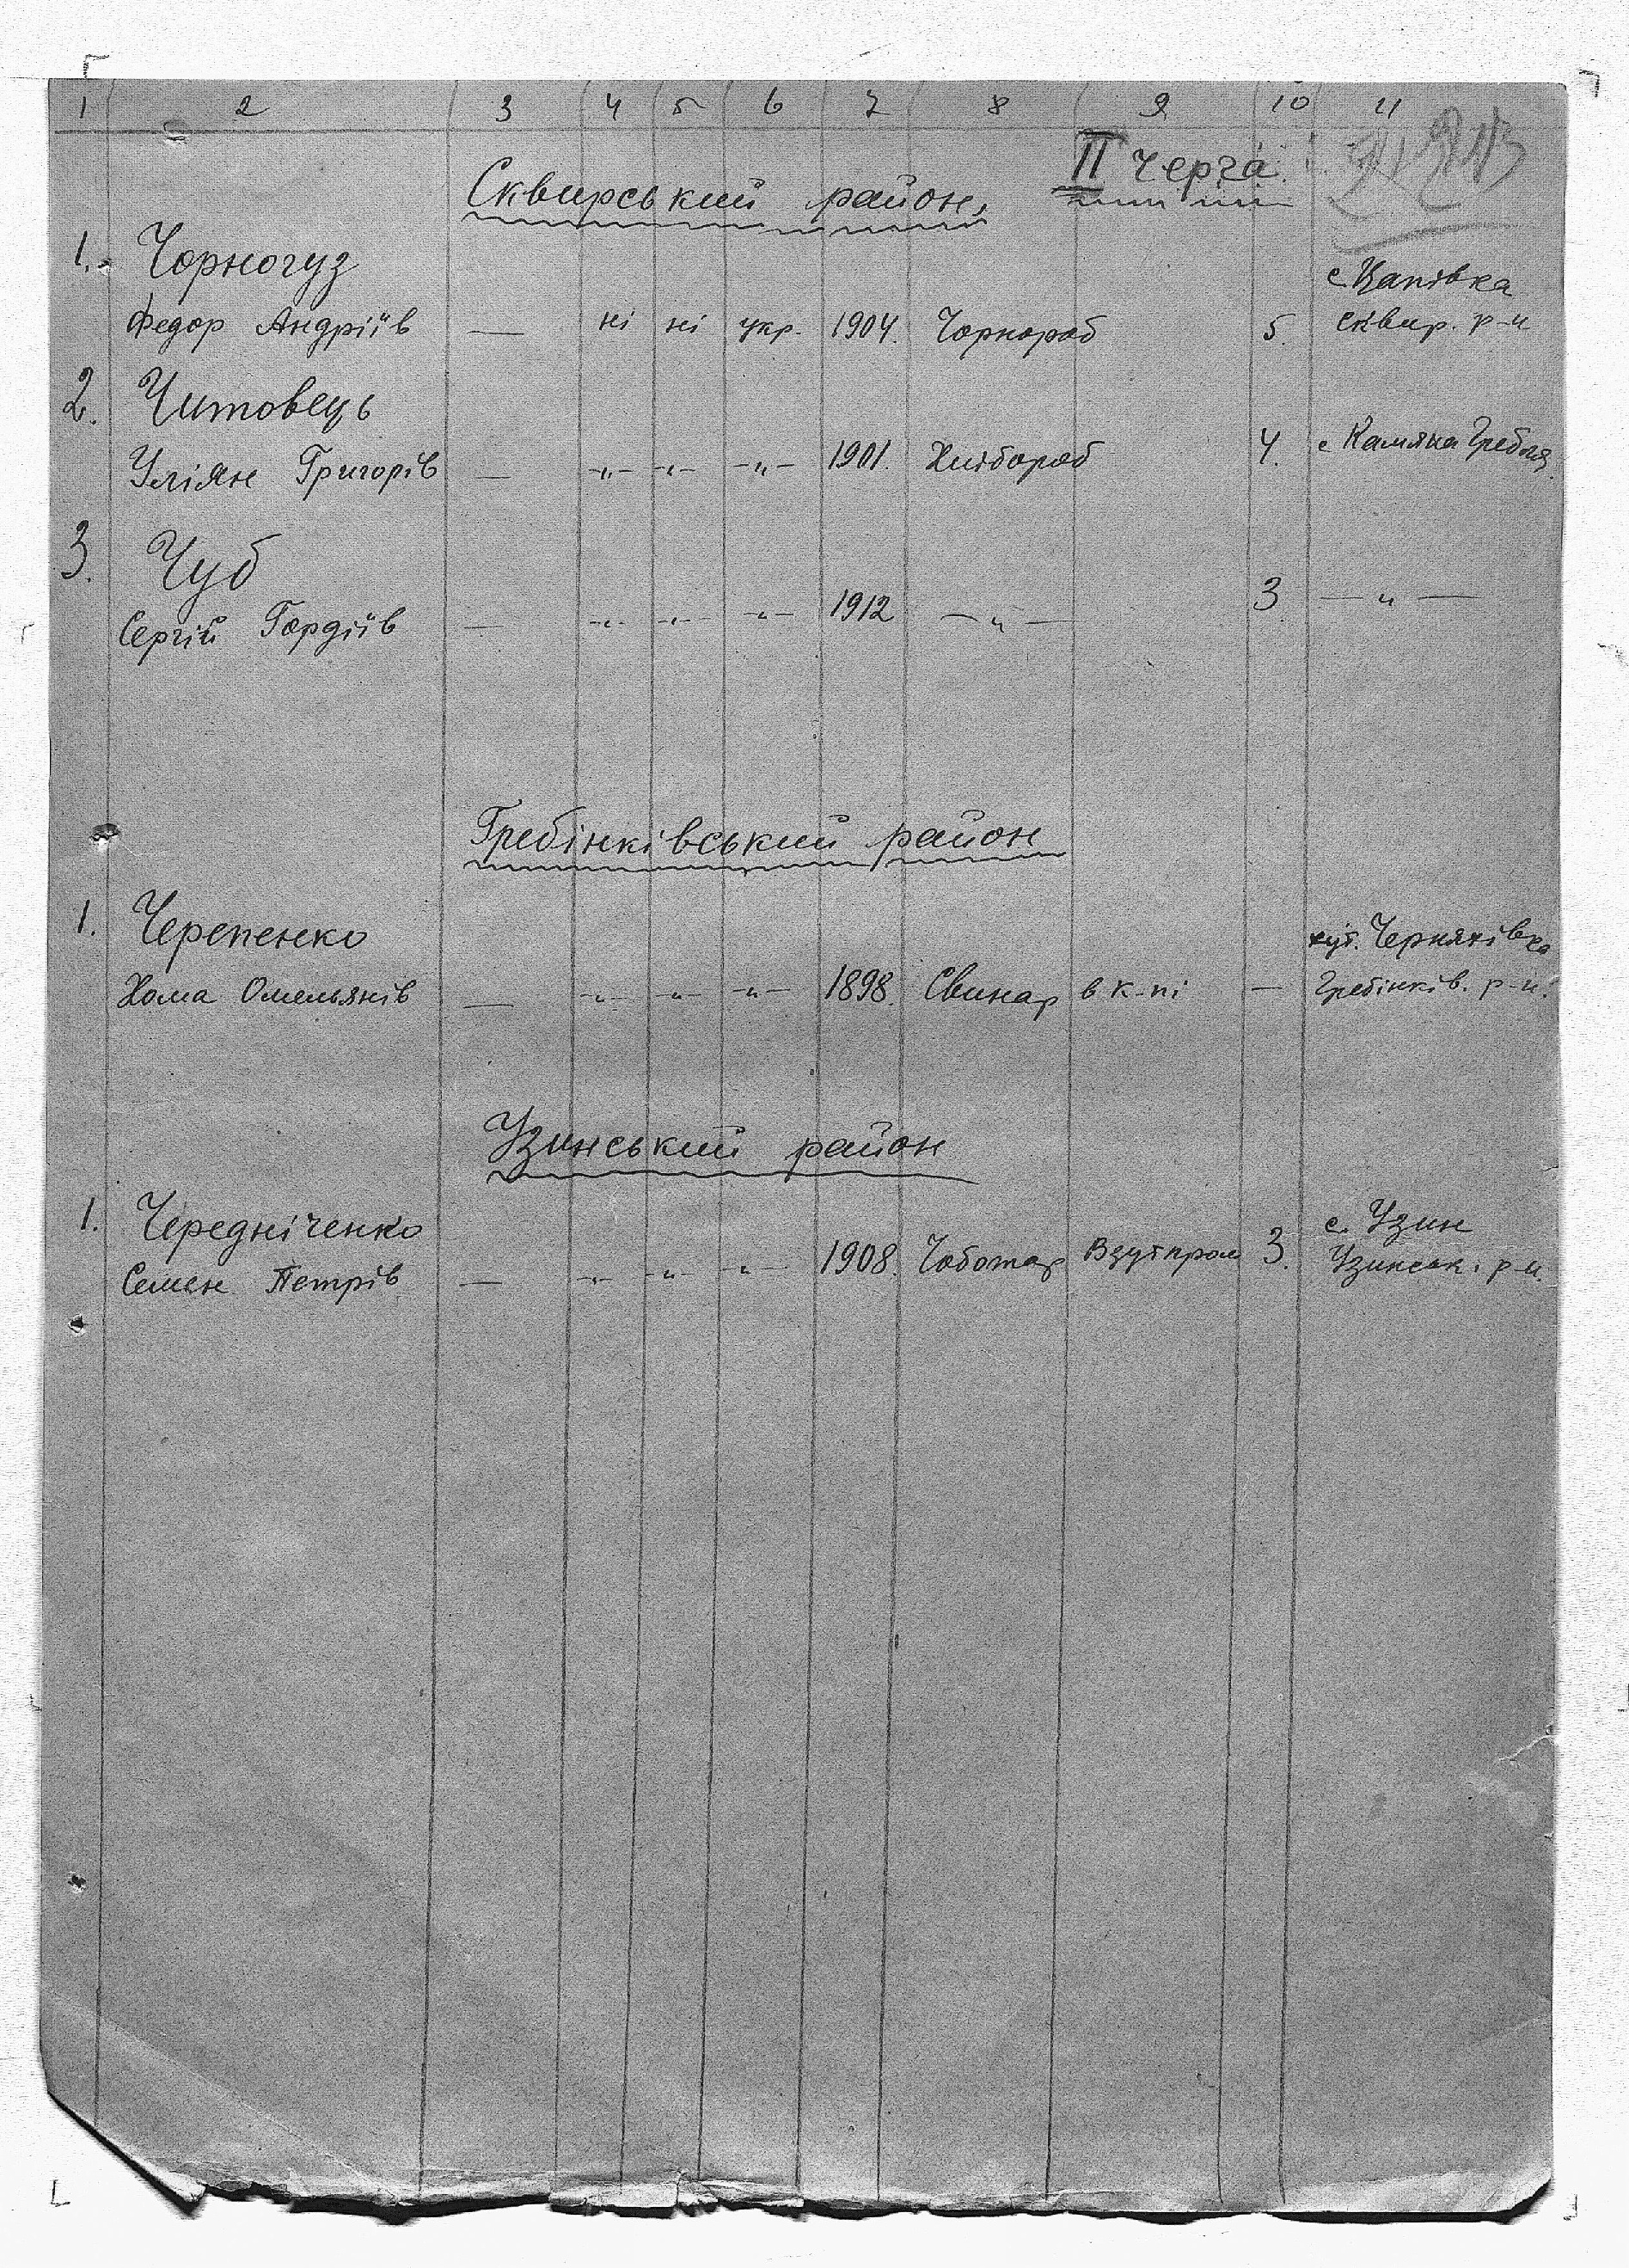 1 2 3 4 5 6 7 8 9 10 11
II черга.
Сквирський район,
1. Чорногуз
с. Цапівка
Федор Андріїв — ні ні укр. 1904. Чорнороб 5. сквир. р-н
2. Читовець
Уліян Григорів — -„- -„- -„- 1901. Хлібороб 4. с Камяна Гребля
3. Чуб
Сергій Гордіїв — -„- -„- -„- 1912 —„— 3 —„—
Гребінківський район
1. Черепенко
хут. Черняхівка
Хома Омельянів — -„- -„- -„- 1898. Свинар в к-пі — Гребінків. р-н.
Узинський район
1. Чередніченко
с. Узин
Семен Петрів — -„- -„- -„- 1908. Чоботар Взутпром 3. Узинськ. р-н.